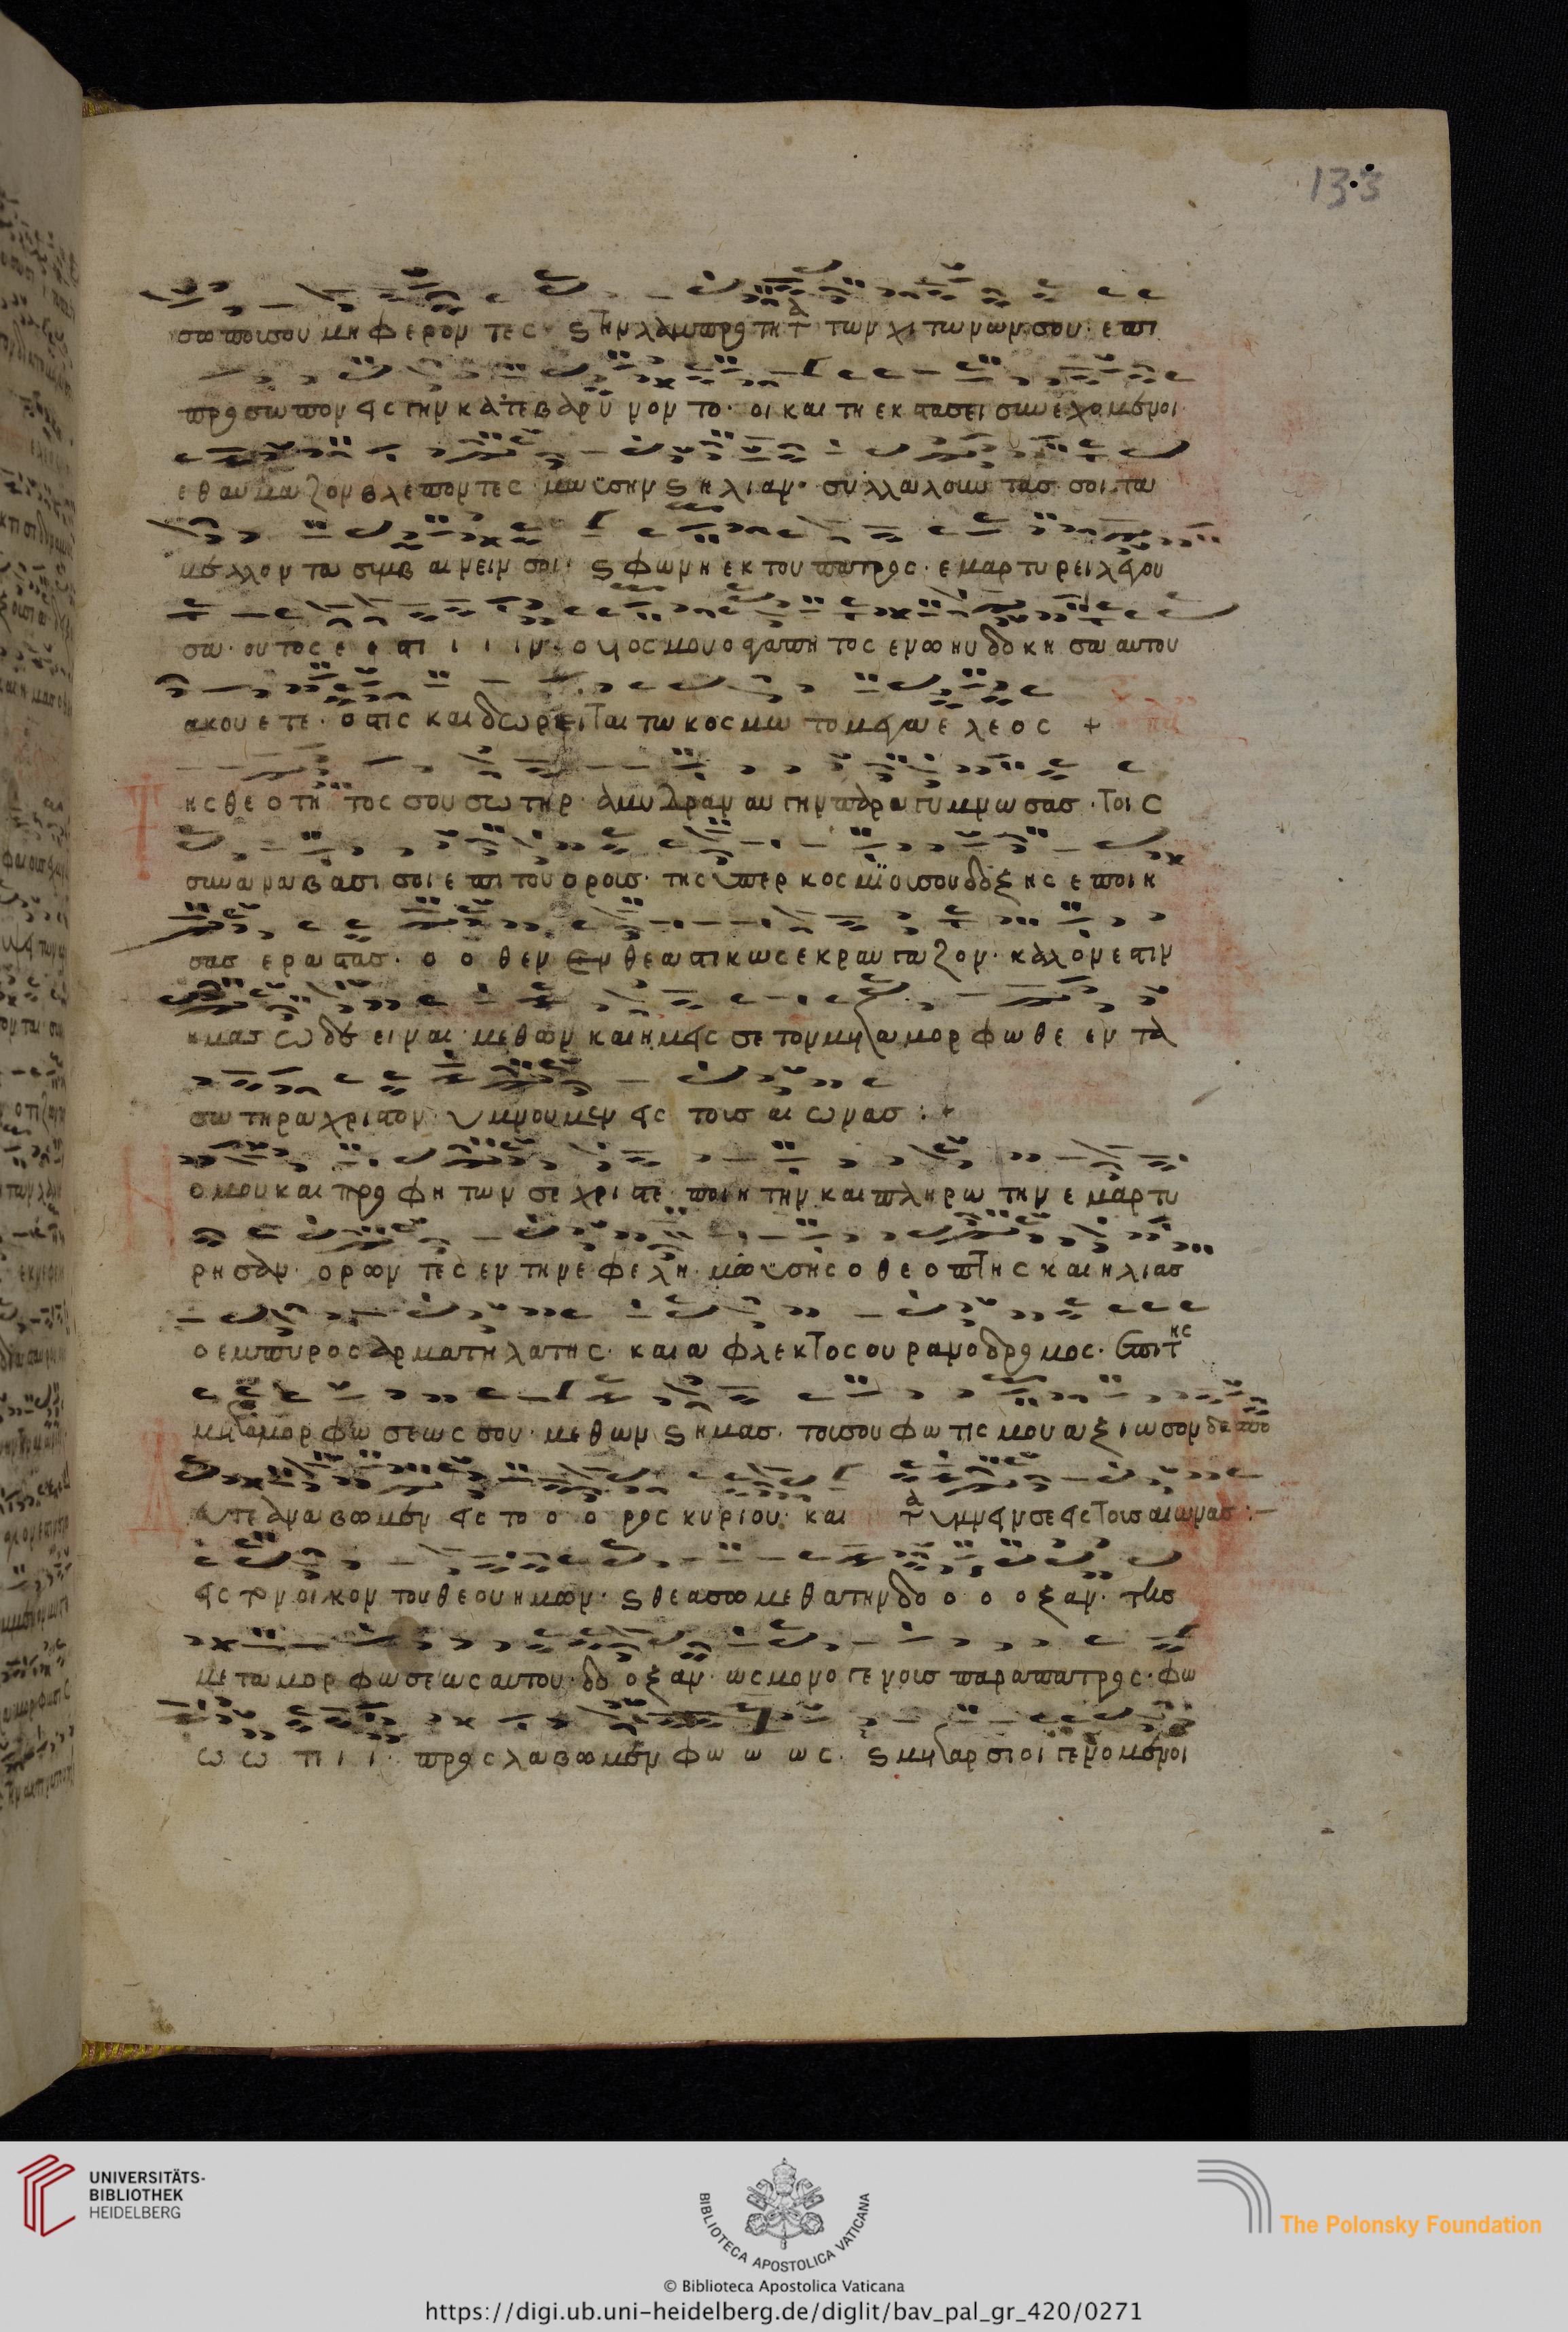 133
σω που σου μη φερον τες · ϛ την λαμπροτητα των χι τωνων σου · ε πι
προσωπον εις γην κατεβαρυ νον το · οι και τη εκ στασει συνεχομενοι
ε θαυμα ζον βλεπον τες μωϋσην ϛ η λι αν · συλλαλουν τας σοι τα
μελλον τα συμβ αι νειν σοι · ϛ φωνη εκ του πατρος · ε μαρ τυ ρει λεγου
σα · ου τος ε ε στι ι ι ιν · ο υιος μου ο αγαπη τος εν ω ηυ δο κη σα αυτου
ακου ε τε · ο στις και δωρειται τω κοσμω το μεγα ε λε ος +
Της θε ο τη τος σου σω τηρ · αμυδραν αυ γην παρα γυμνω σας · τοις
συνα να βασι σοι ε πι του ορους · της υπερ κοσμϊου σου δοξ ης ε ποι η
σας ερα στας · ο ο θεν εν θεαστικως εκραυ γα ζον · καλον ε στιν
ημας ωδε ειναι · μεθ ων και ημεις σε τον μετα μορ φω θε εν τα
σω τη ρα χριστον · υμνουμεν εις τους αι ωνας : +
Νομου και προ φη των σε χρι στε · ποιη την και πληρω την ε μαρτυ
ρη σαν · ορων τες εν τη νε φε λη · μωϋσης ο θε ο πτης και ηλιας
ο εμπυρος αρματηλατης · και α φλεκτος ουρανοδρομος · επι της
μεταμορ φω σεως σου · μεθ ων ϛ ημας · του σου φω τισ μου α ξι ωσον δεσπο
τα υμνειν σε εις τους αιωνας :—
Δευτε ανα βωμεν εις το ο ο ρος κυριου · και
εις τον οι κον του θε ου ημων · ϛ θε ασω μεθ α την δο ο ο ο ξαν · της
μετα μορ φω σε ως αυτου · δο ο ξαν · ως μονο γε νους παρα πατρος · φω
ω ω τι ι ι · προς λα βωμεν φω ω ως · ϛ μεταρ σι οι γενομενοι
UNIVERSITÄTS-
BIBLIOTHEK
HEIDELBERG
BIBLIOTECA APOSTOLICA VATICANA
The Polonsky Foundation
© Biblioteca Apostolica Vaticana
https://digi.ub.uni-heidelberg.de/diglit/bav_pal_gr_420/0271